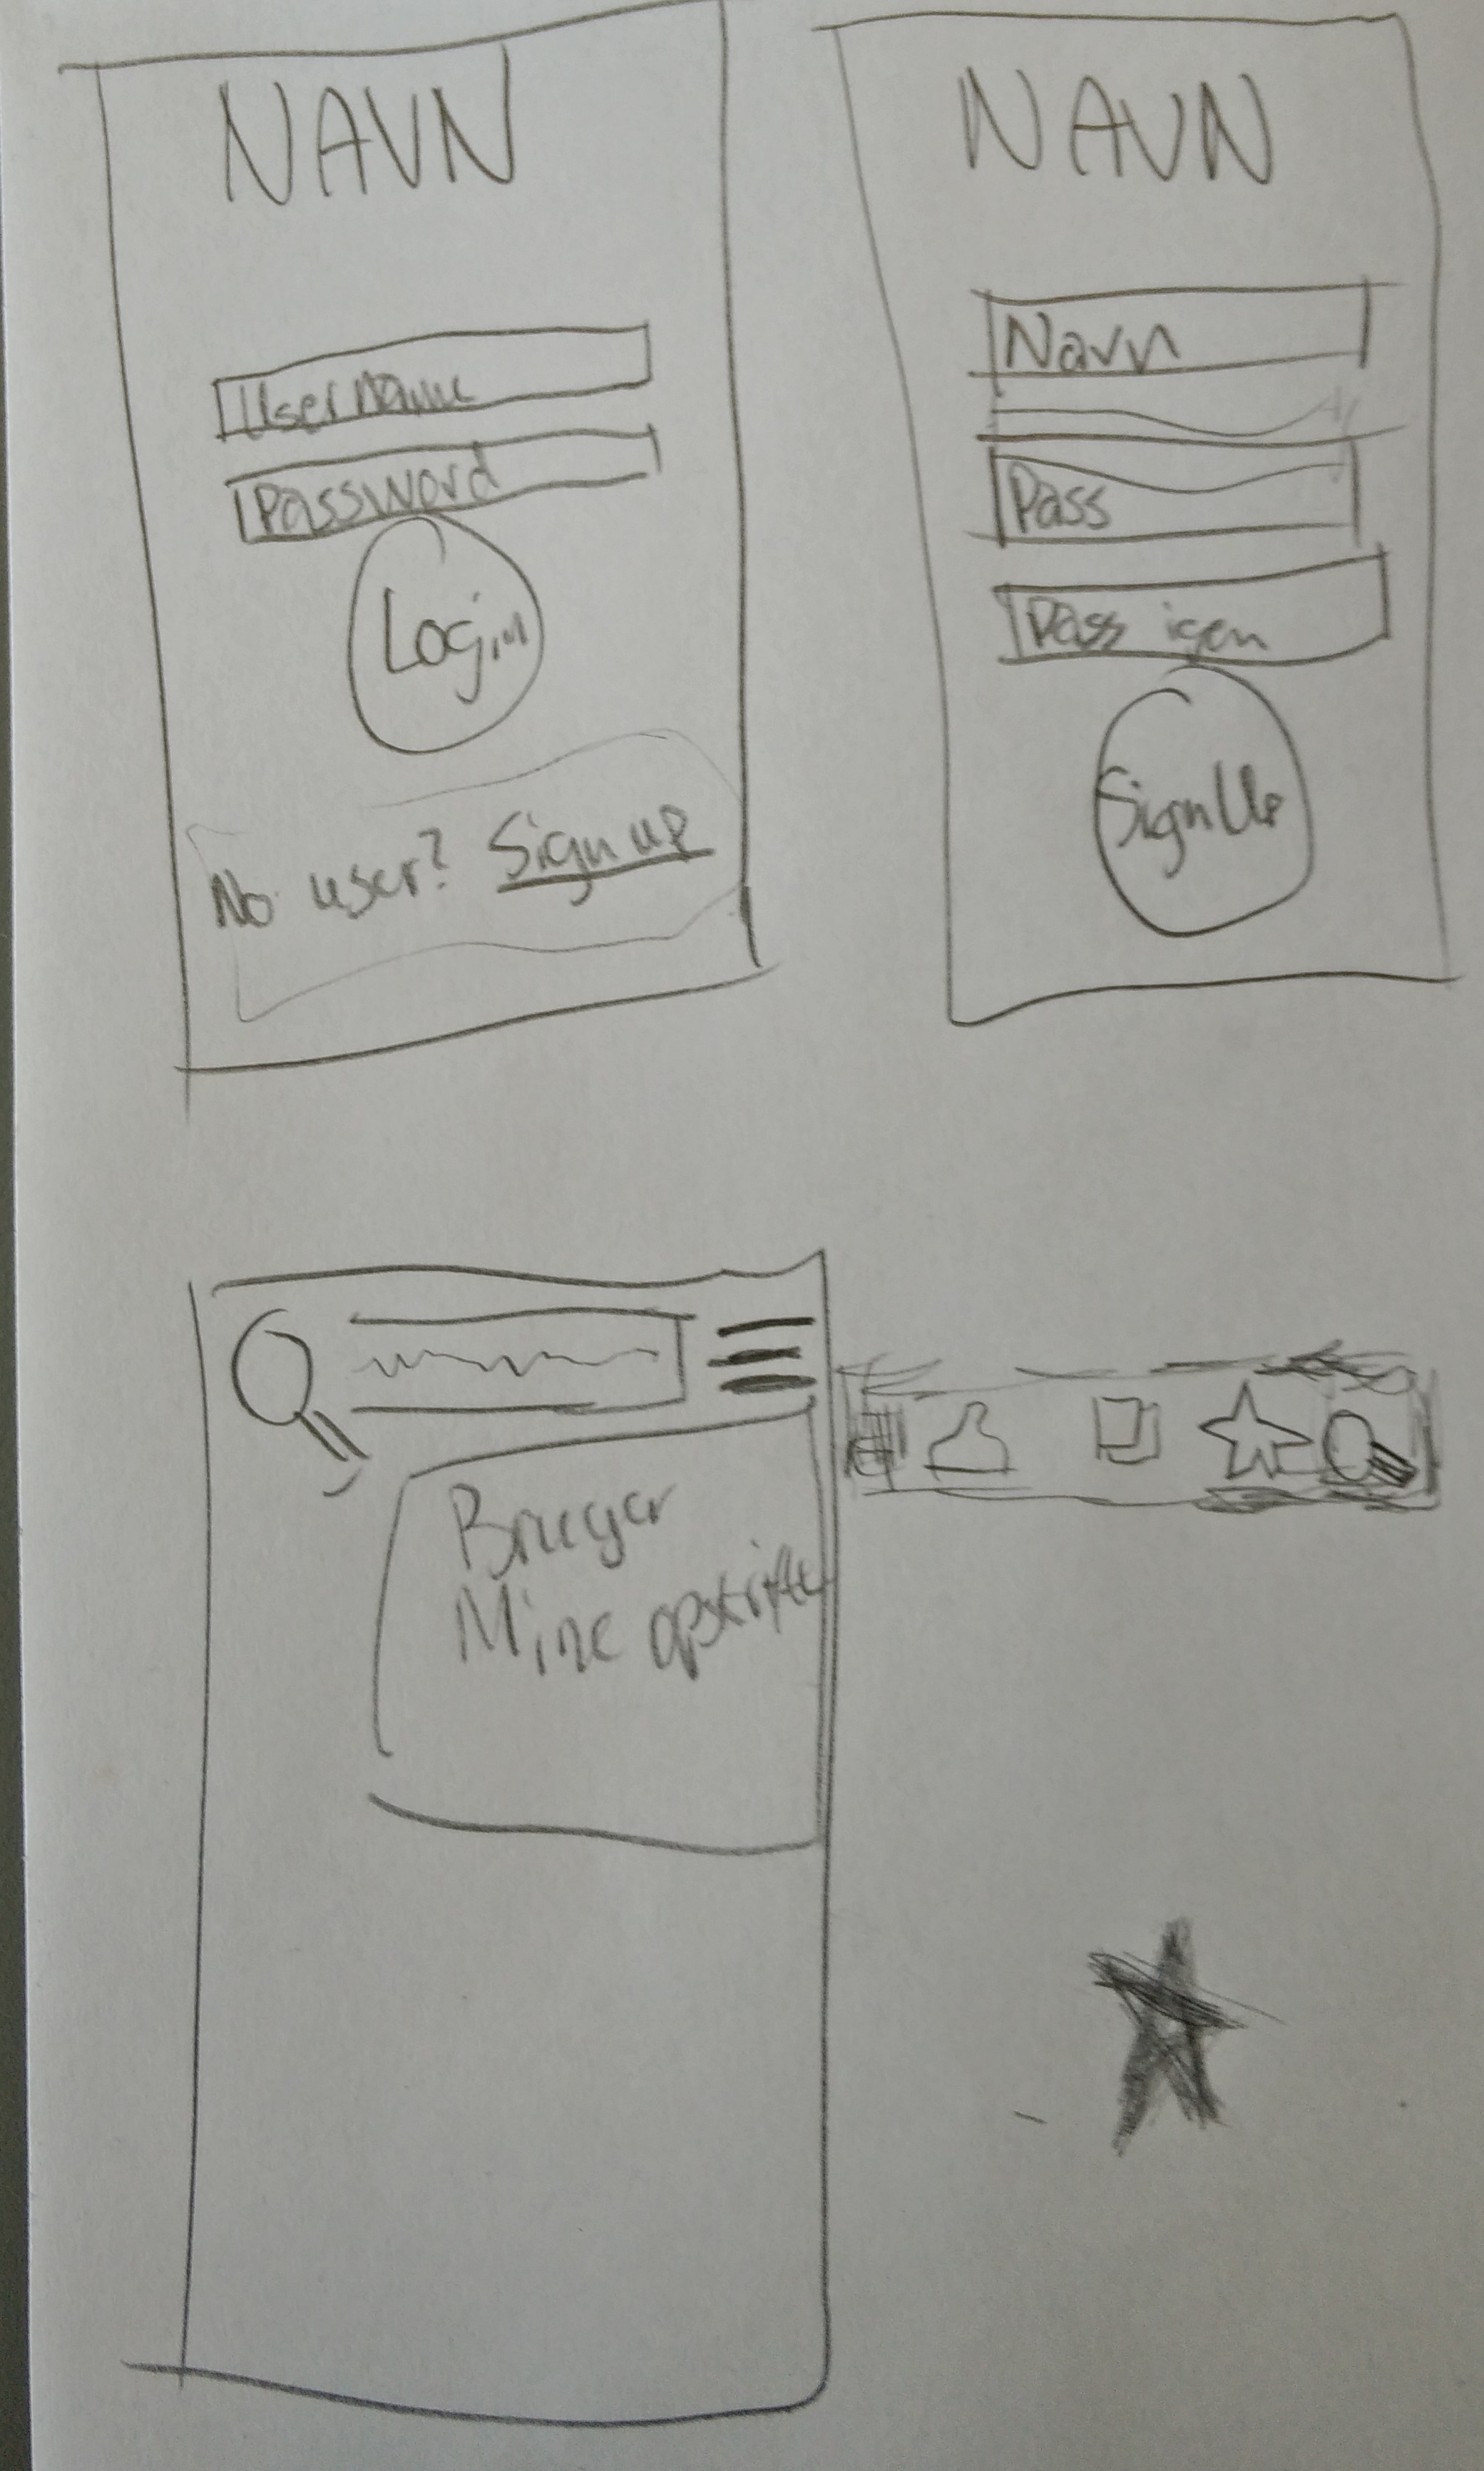 NAVN
UserName
Password
Login
No user? Sign up
NAVN
Navn
Pass
Pass igen
Sign Up
Bruger
Mine opskrifter